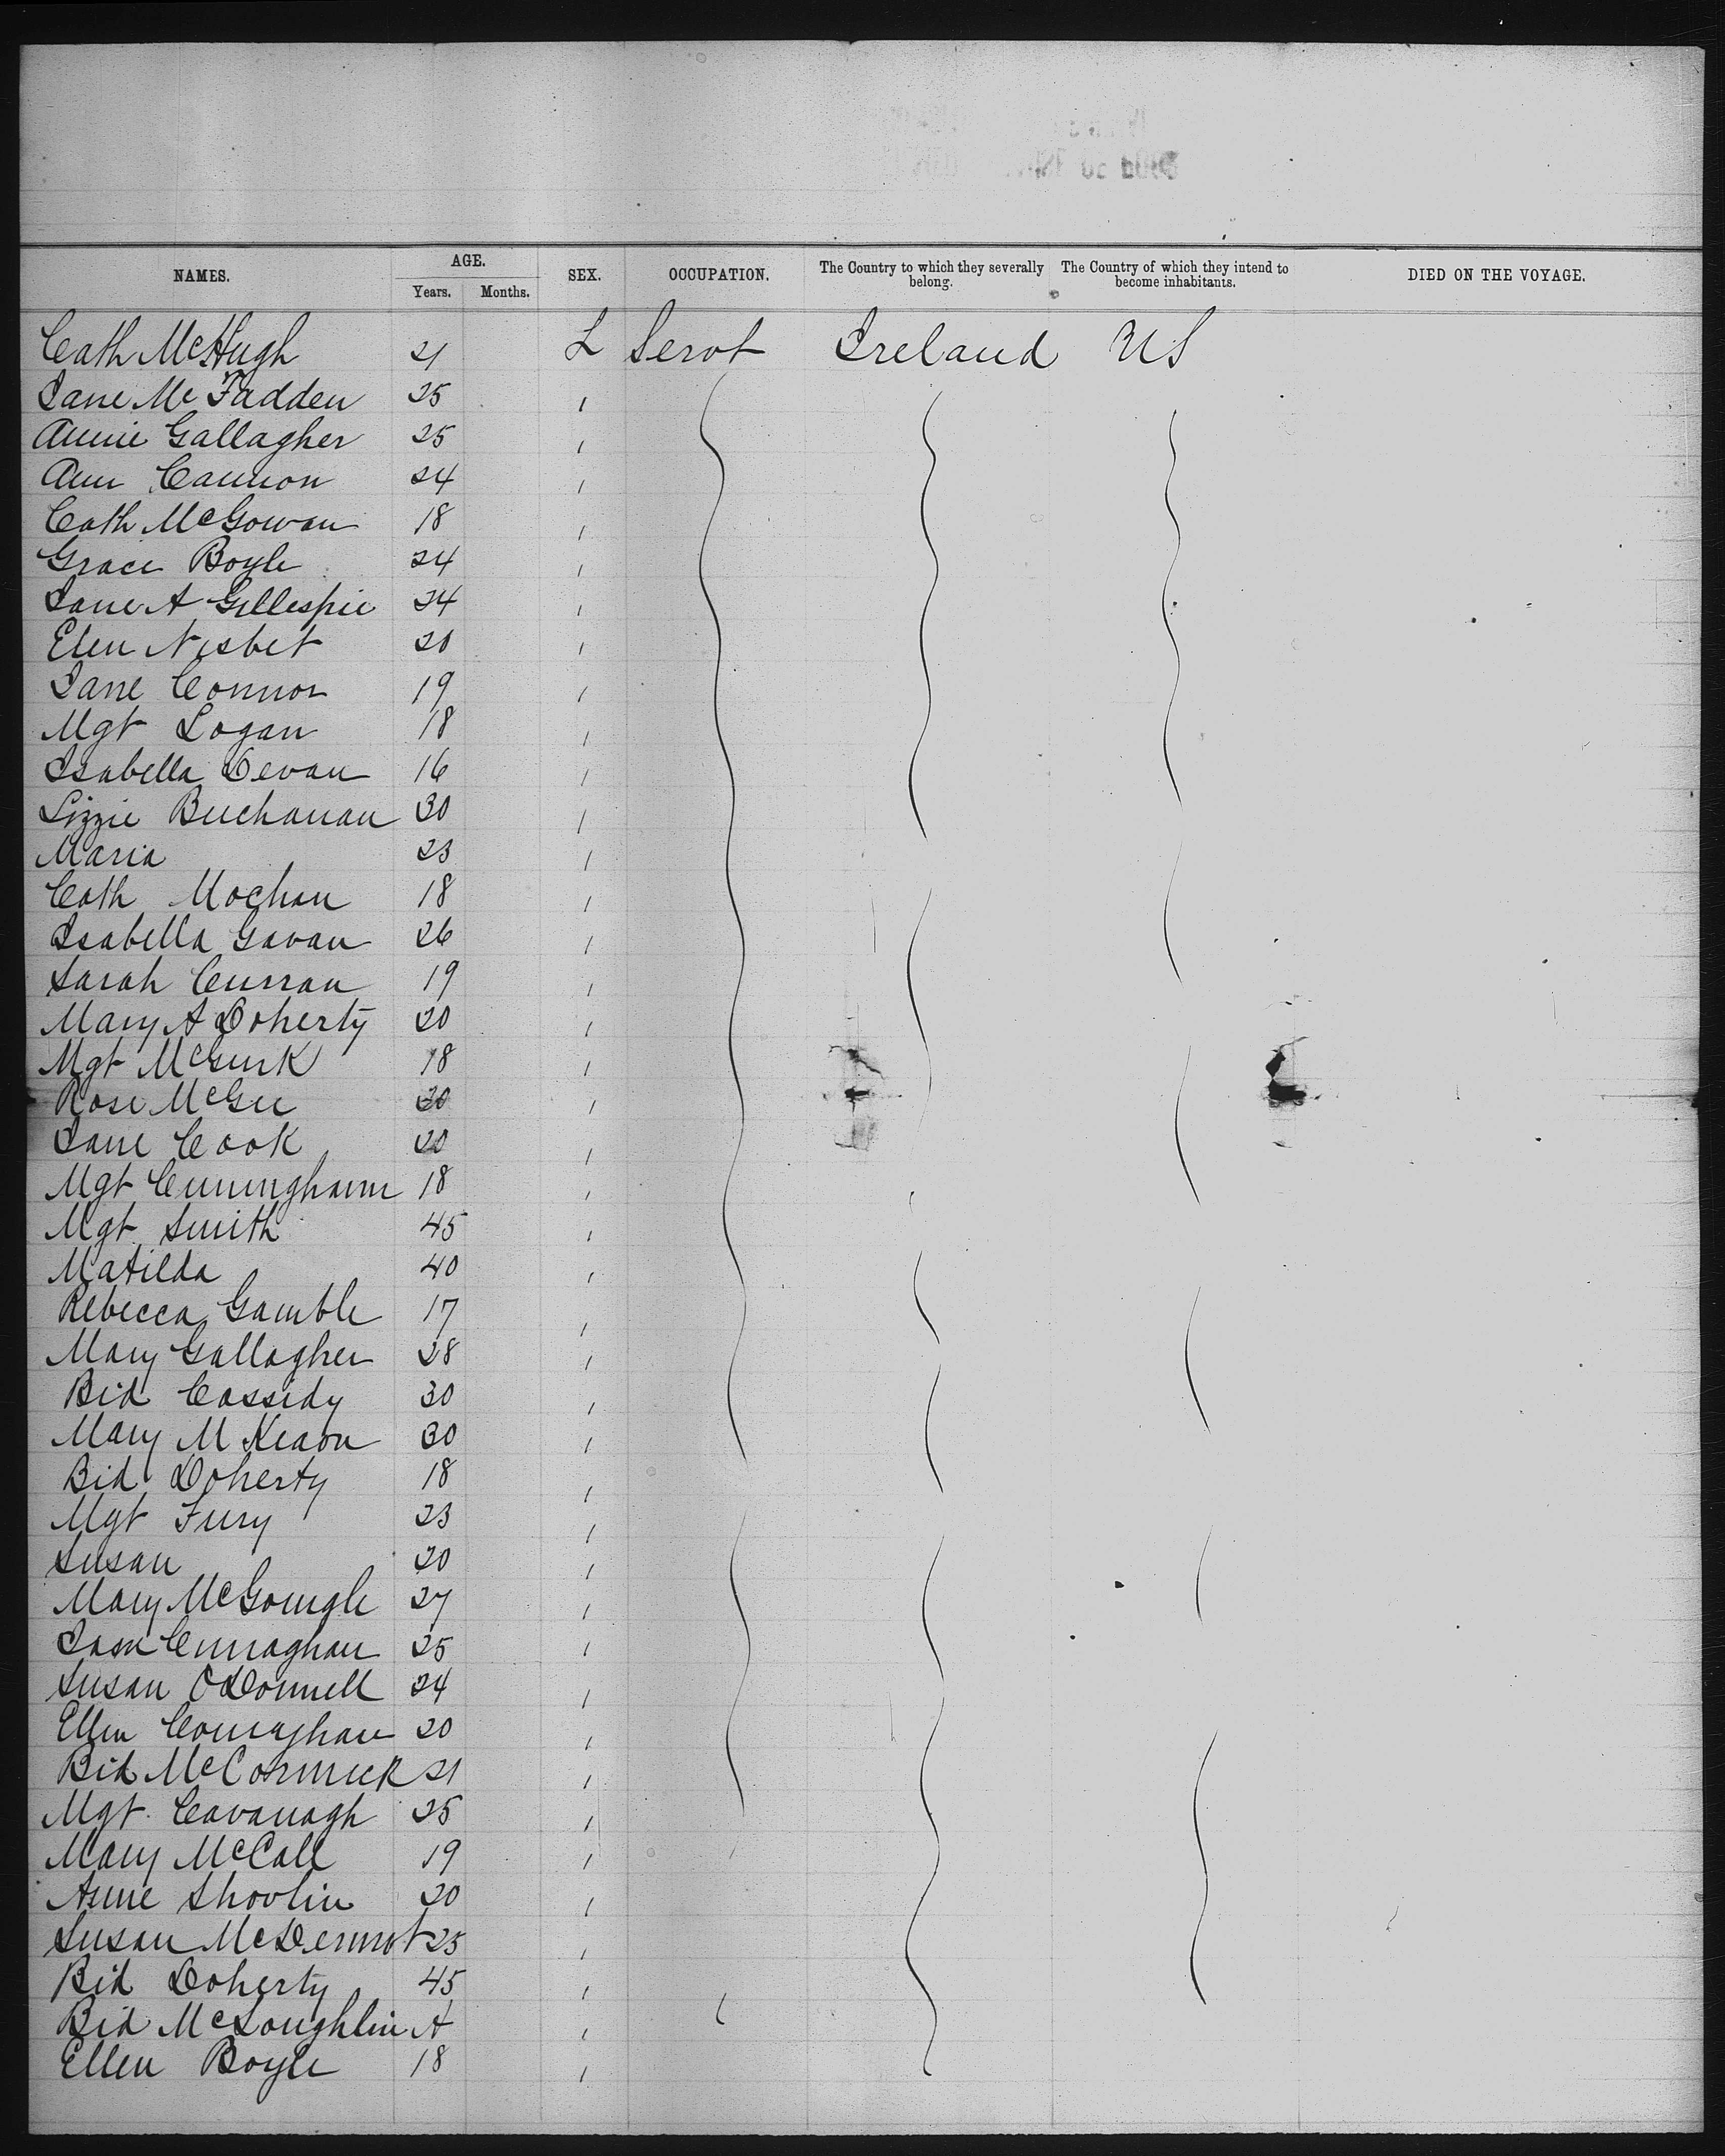 NAMES. AGE. SEX. OCCUPATION. The Country to which they severally belong. The Country of which they intend to become inhabitants. DIED ON THE VOYAGE.
Years. Months.
Cath McHugh 21 L Servt Ireland US
Jane Mc Fadden 25
Annie Gallagher 25
Ann Cannon 24
Cath McGowan 18
Grace Boyle 24
Jane A Gillespie 24
Elen Nisbet 20
Jane Connor 19
Mgt Logan 18
Isabella Devan 16
Lizzie Buchanan 30
Maria 23
Cath Mochan 18
Isabella Gavan 26
Sarah Curran 19
Mary A Doherty 20
Mgt McGurk 18
Rose McGee 20
Jane Cook 20
Mgt Cuningham 18
Mgt Smith 45
Matilda 40
Rebecca Gamble 17
Mary Gallagher 28
Bid Cassidy 30
Mary M Keaon 30
Bid Doherty 18
Mgt Fury 23
Susan 20
Mary McGonigle 27
Cunaghan 25
Susan ODonnell 24
Ellen Conaghan 20
Bid McCormick 21
Mgt. Cavanagh 25
Mary McCall 19
Anne Shovlin 20
Susan McDermot 25
Bid Doherty 45
Bid McLoughlin A
Ellen Boyle 18